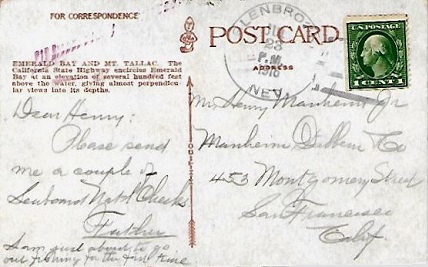 FOR CORRESPONDENCE
EMERALD BAY AND MT. TALLAC. The
California State Highway encircles Emerald
Bay at an elevation of several hundred feet
above the water, giving almost perpendicu-
lar views into its depths.
Dear Henry:
Please send
me a couple of
Natl Checks
Father
I am just about to go
out fishing for the first time
GLENBROOK
23
P.M.
1916
NEV.
POST CARD
ADDRESS
U.S. POSTAGE
1 CENT 1
Mr Henry Manheim Jr
Manheim Dibbern Co
453 Montgomery Street
San Francisco
Calif